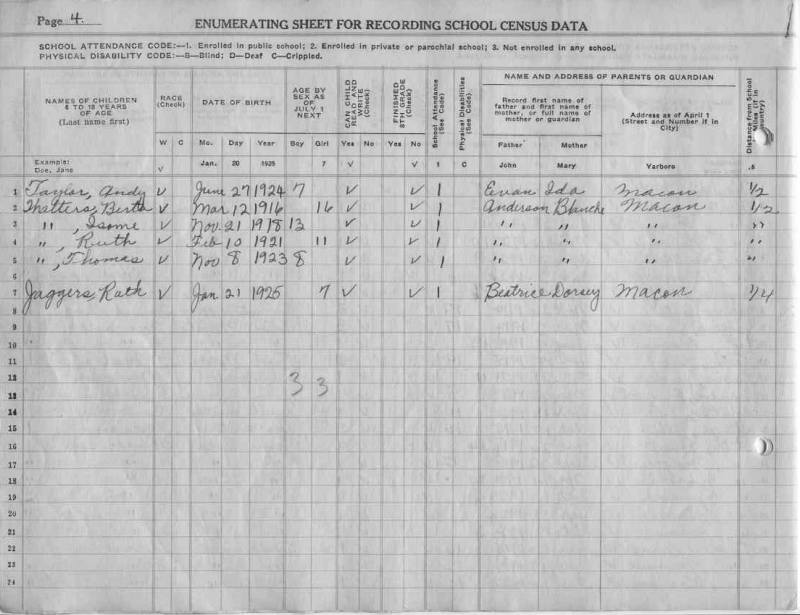 Page 4.
ENUMERATING SHEET FOR RECORDING SCHOOL CENSUS DATA
SCHOOL ATTENDANCE CODE:—1. Enrolled in public school; 2. Enrolled in private or parochial school; 3. Not enrolled in any school.
PHYSICAL DISABILITY CODE:—B—Blind; D—Deaf C—Crippled.
NAMES OF CHILDREN 6 TO 18 YEARS OF AGE (Last name first)
RACE (Check)
DATE OF BIRTH
AGE BY SEX AS OF JULY 1 NEXT
CAN CHILD READ AND WRITE (Check)
FINISHED 8TH GRADE (Check)
School Attendance (See Code)
Physical Disabilities (See Code)
NAME AND ADDRESS OF PARENTS OR GUARDIAN
Record first name of father and first name of mother, or full name of mother or guardian
Address as of April 1 (Street and Number if in City)
Distance from School Miles (if in Country)
W C Mo. Day Year Boy Girl Yes No Yes No Father Mother
Example: Doe, Jane √ Jan. 20 1925 7 √ √ 1 C John Mary Yarboro .5
1 Taylor, Andy √ June 27 1924 7 √ √ 1 Evan Ida Macon 1/2
2 √ Mar 12 1916 16 √ √ 1 Anderson Blanche Macon 1/2
3 " , Isome √ Nov. 21 1918 13 √ √ 1 " " " "
4 " , Ruth √ Feb 10 1921 11 √ √ 1 " " " "
5 " , Thomas √ Nov 8 1923 8 √ √ 1 " " " "
6
7 Jaggers, Ruth √ Jan 21 1925 7 √ √ 1 Beatrice Dorsey Macon 1/4
8
9
10
11
12 3 3
13
14
15
16
17
18
19
20
21
22
23
24